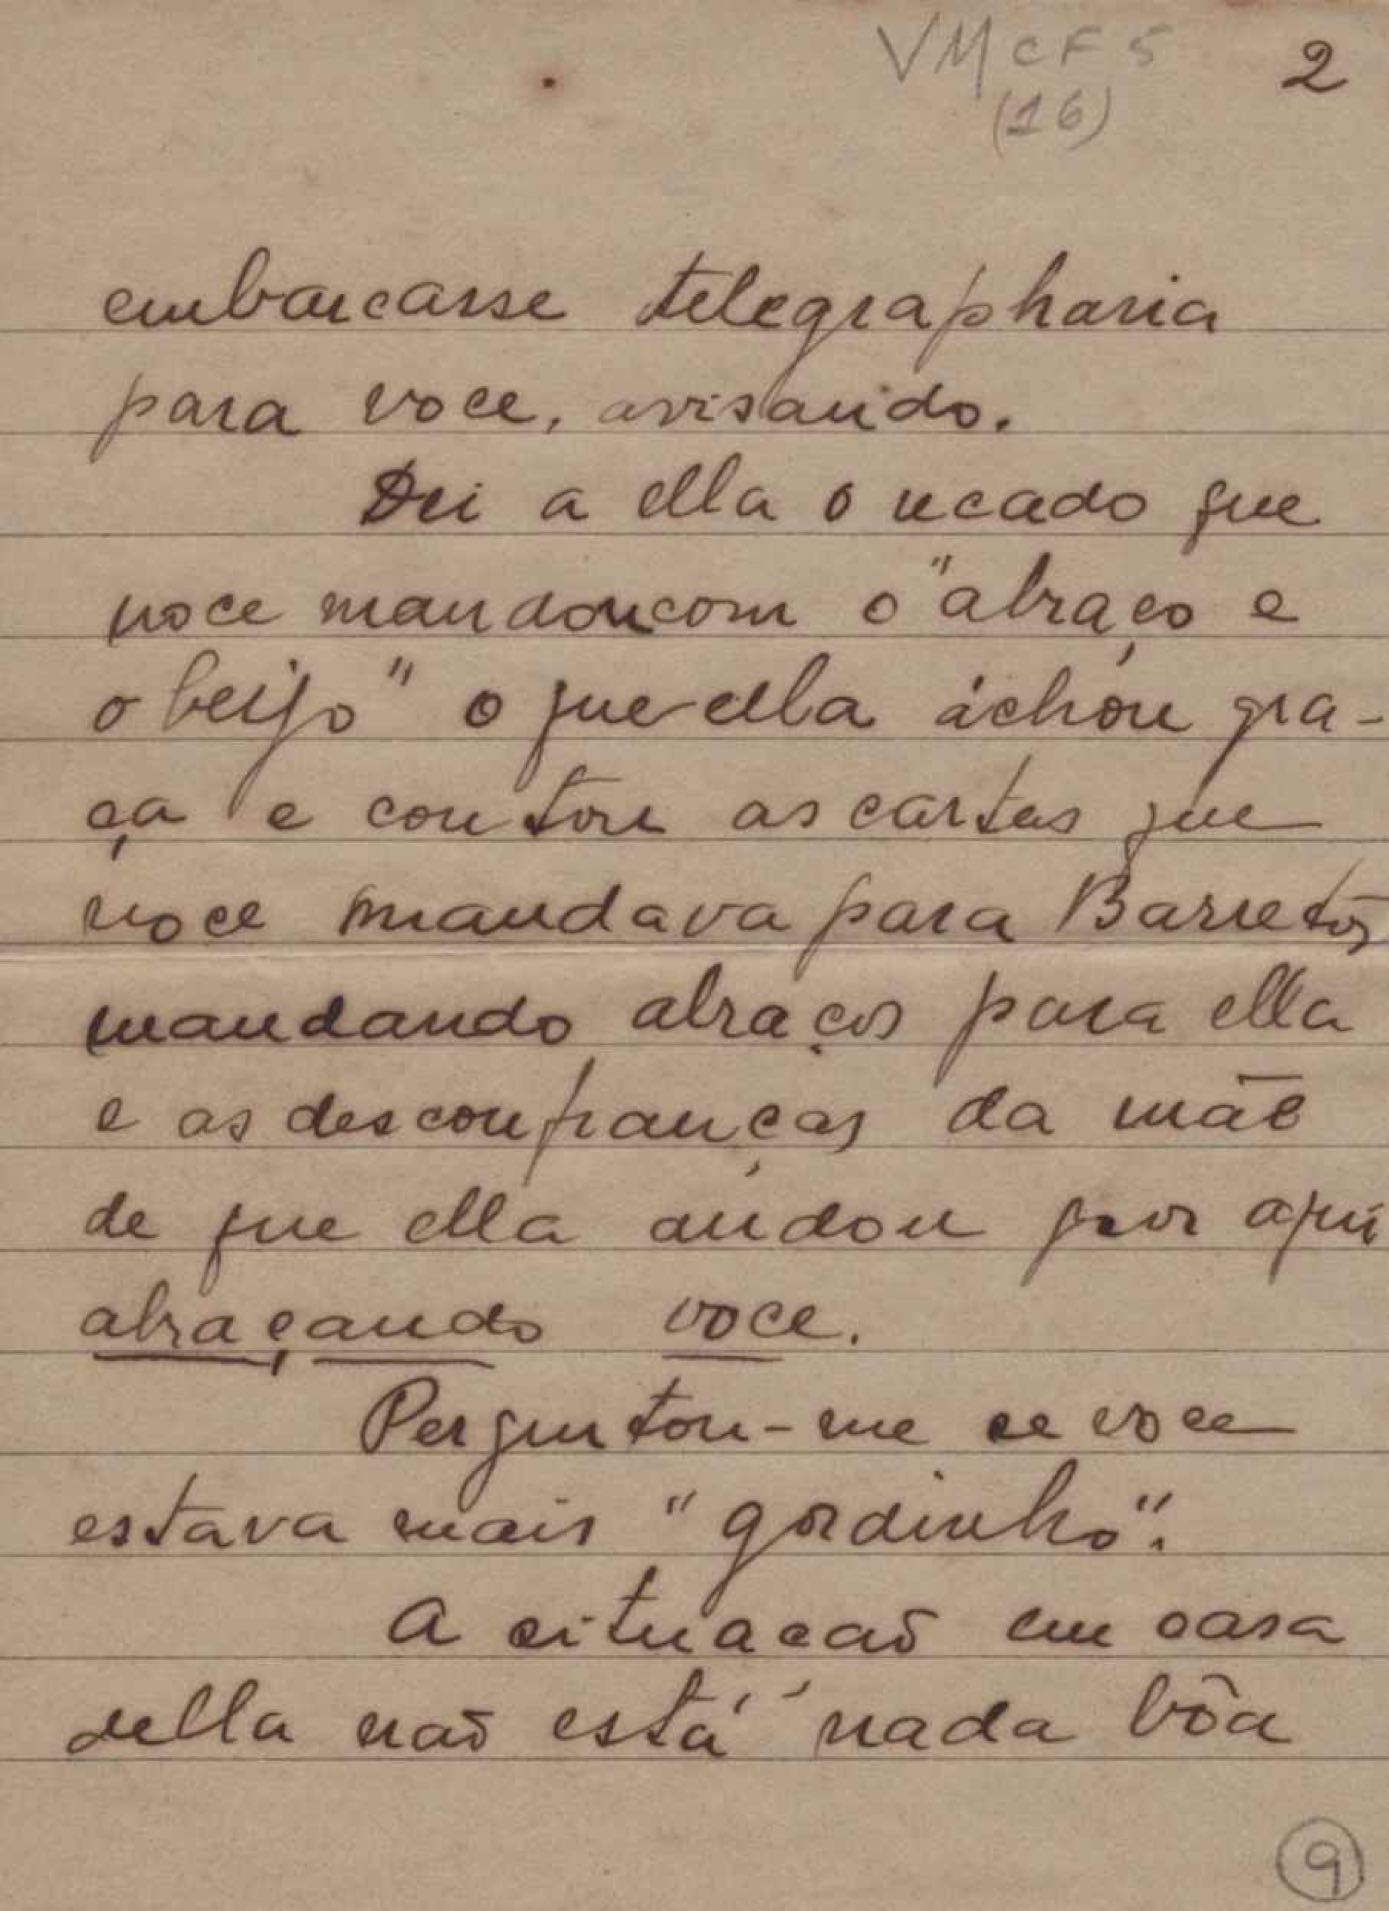 VMCF5 2
(16)
embarcasse telegrapharia
para voce, avisando.
Dei a ella o recado que
voce mandou com o "abraço e
o beijo" o que ella achou gra-
ça e contou as cartas que
voce mandava para Barretos
mandando abraços para ella
e as desconfianças da mãe
de que ella andou por aqui
abraçando voce.
Perguntou-me se voce
estava mais "gordinho".
A situacaõ em casa
della naõ está nada bôa
9